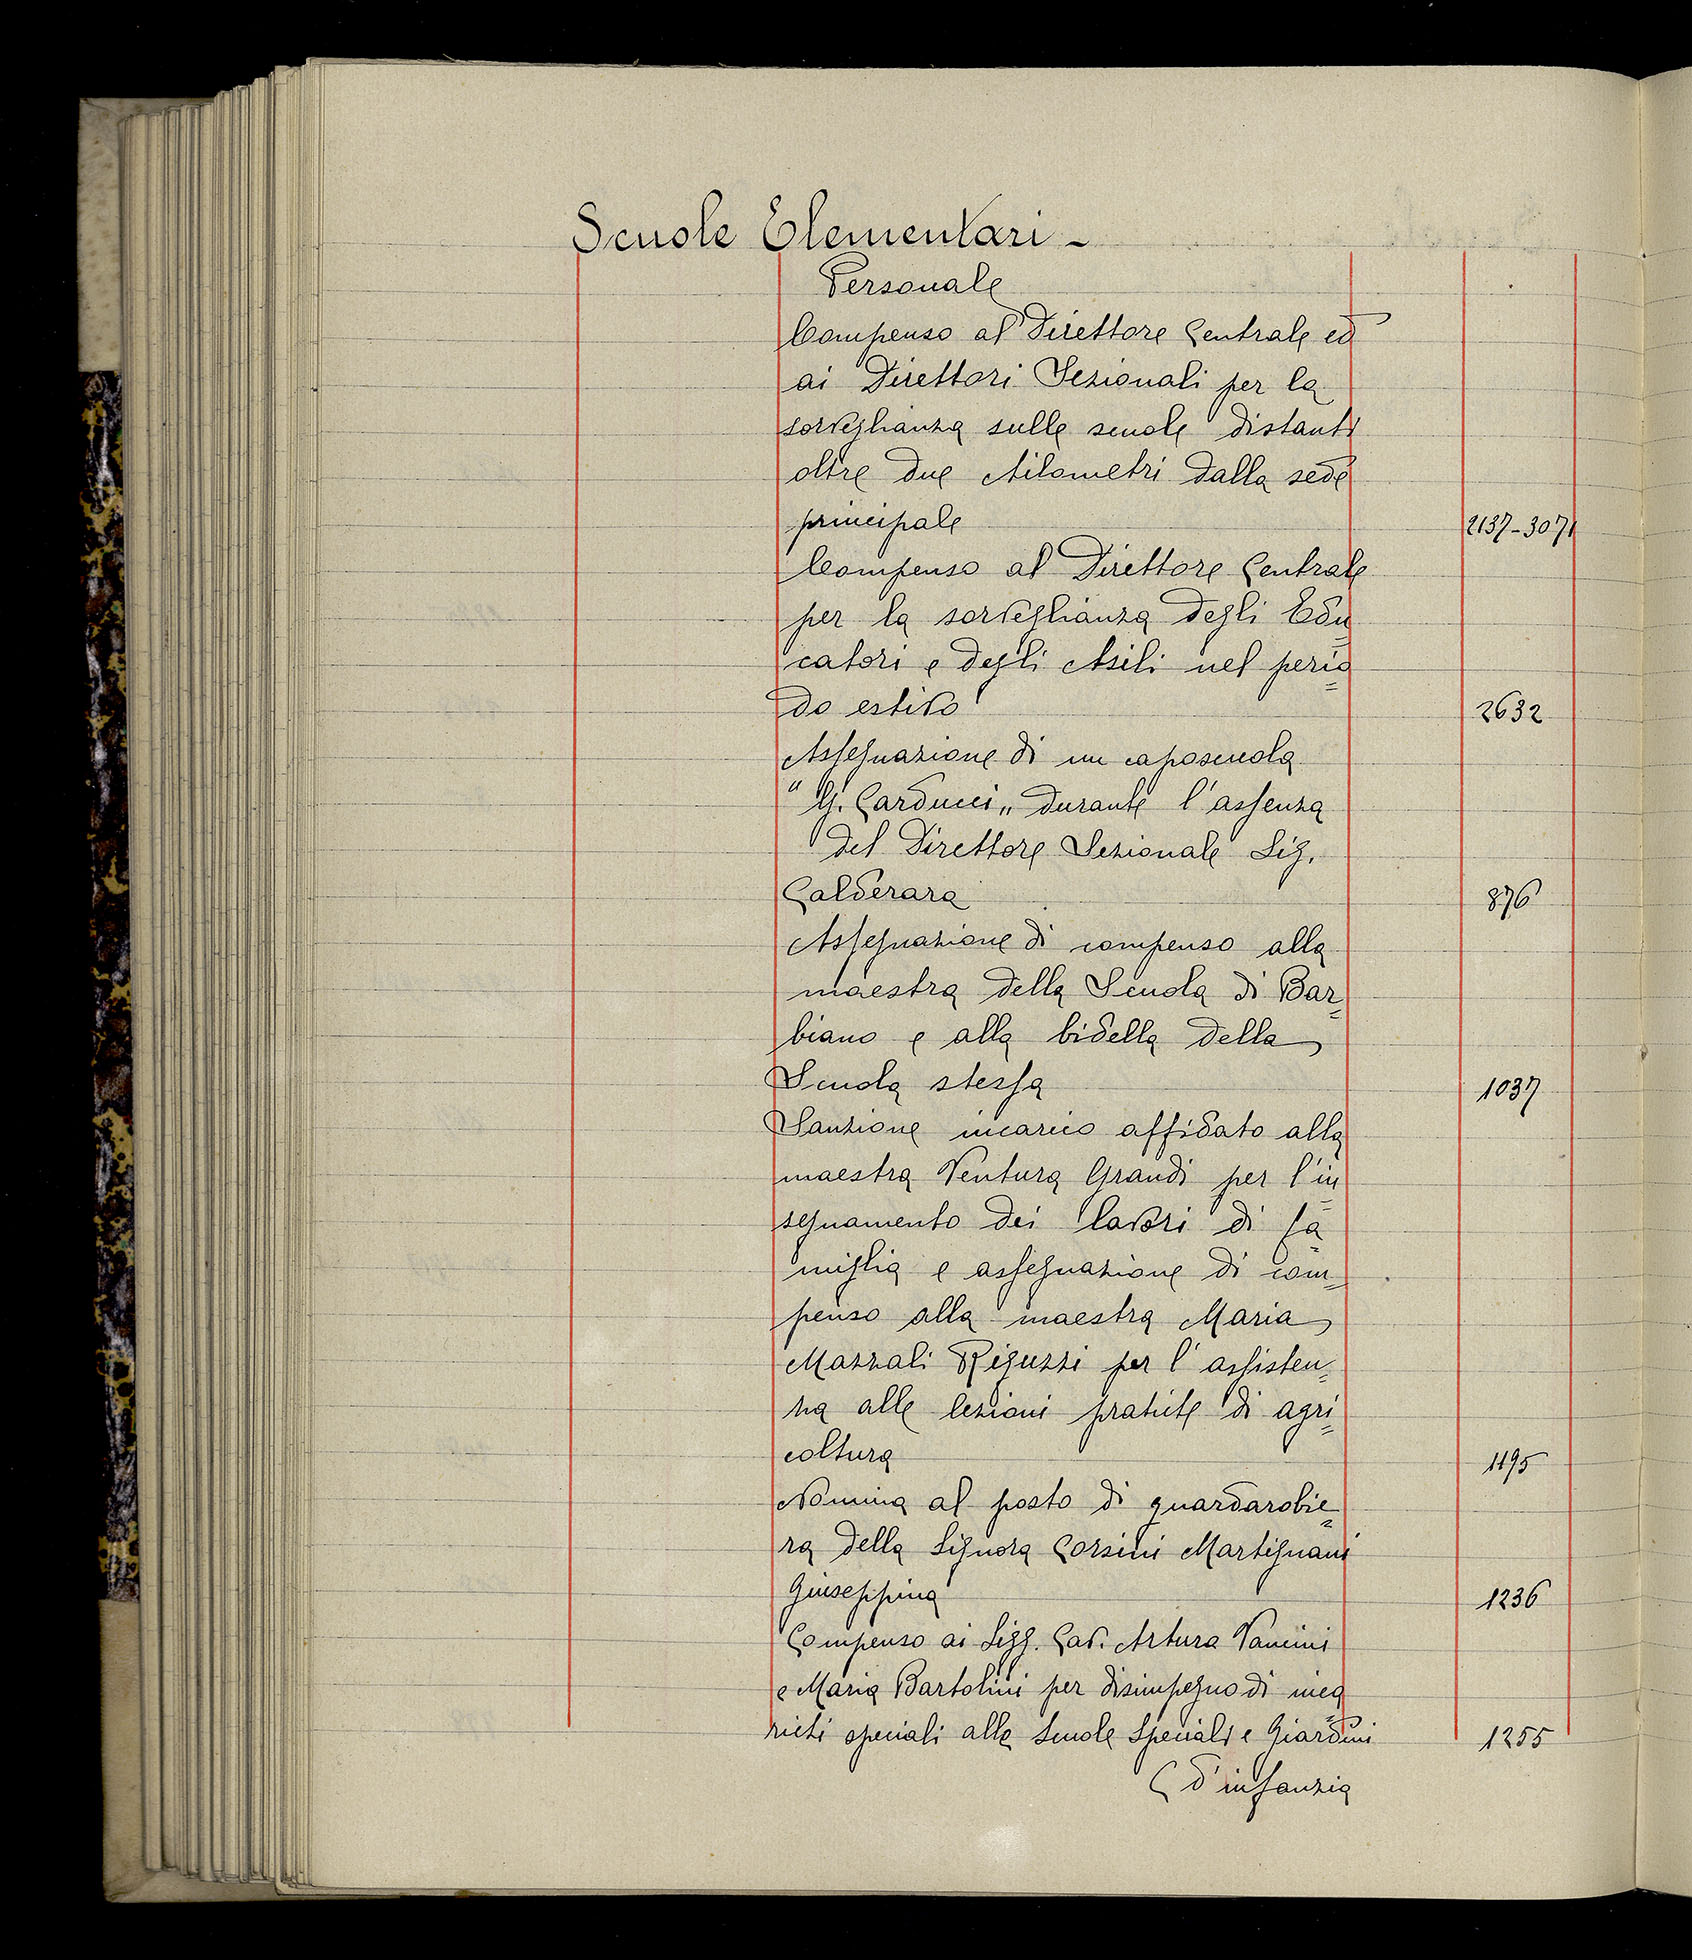 Scuole Elementari -
Personale
Compenso al Direttore Centrale ed
ai Direttori Sezionali per la
sorveglianza sulle scuole distanti
oltre due Kilometri dalla sede
principale 2137-3071
Compenso al Direttore Centrale
per la sorveglianza degli Edu=
catori e degli Asili nel perio=
do estivo 2632
Assegnazione di un caposcuola
"G. Carducci„ durante l'assenza
del Direttore Sezionale Sig.
Calderara 876
Assegnazione di compenso alla
maestra della Scuola di Bar=
biano e alla bidella della
Scuola stessa 1037
Sanzione incarico affidato alla
maestra Ventura Grandi per l'in=
segnamento dei lavori di fa=
miglia e assegnazione di com=
penso alla maestra Maria
Mazzali Riguzzi per l'assisten=
za alle lezioni pratiche di agri=
coltura 1195
Nomina al posto di guardarobie=
ra della Signora Corsini Martignani
Giuseppina 1236
Compenso ai Sigg. Cav. Arturo Vancini
e Maria Bartolini per disimpegno di inca=
richi speciali alle Scuole Speciali e Giardini
( d'infanzia 1255